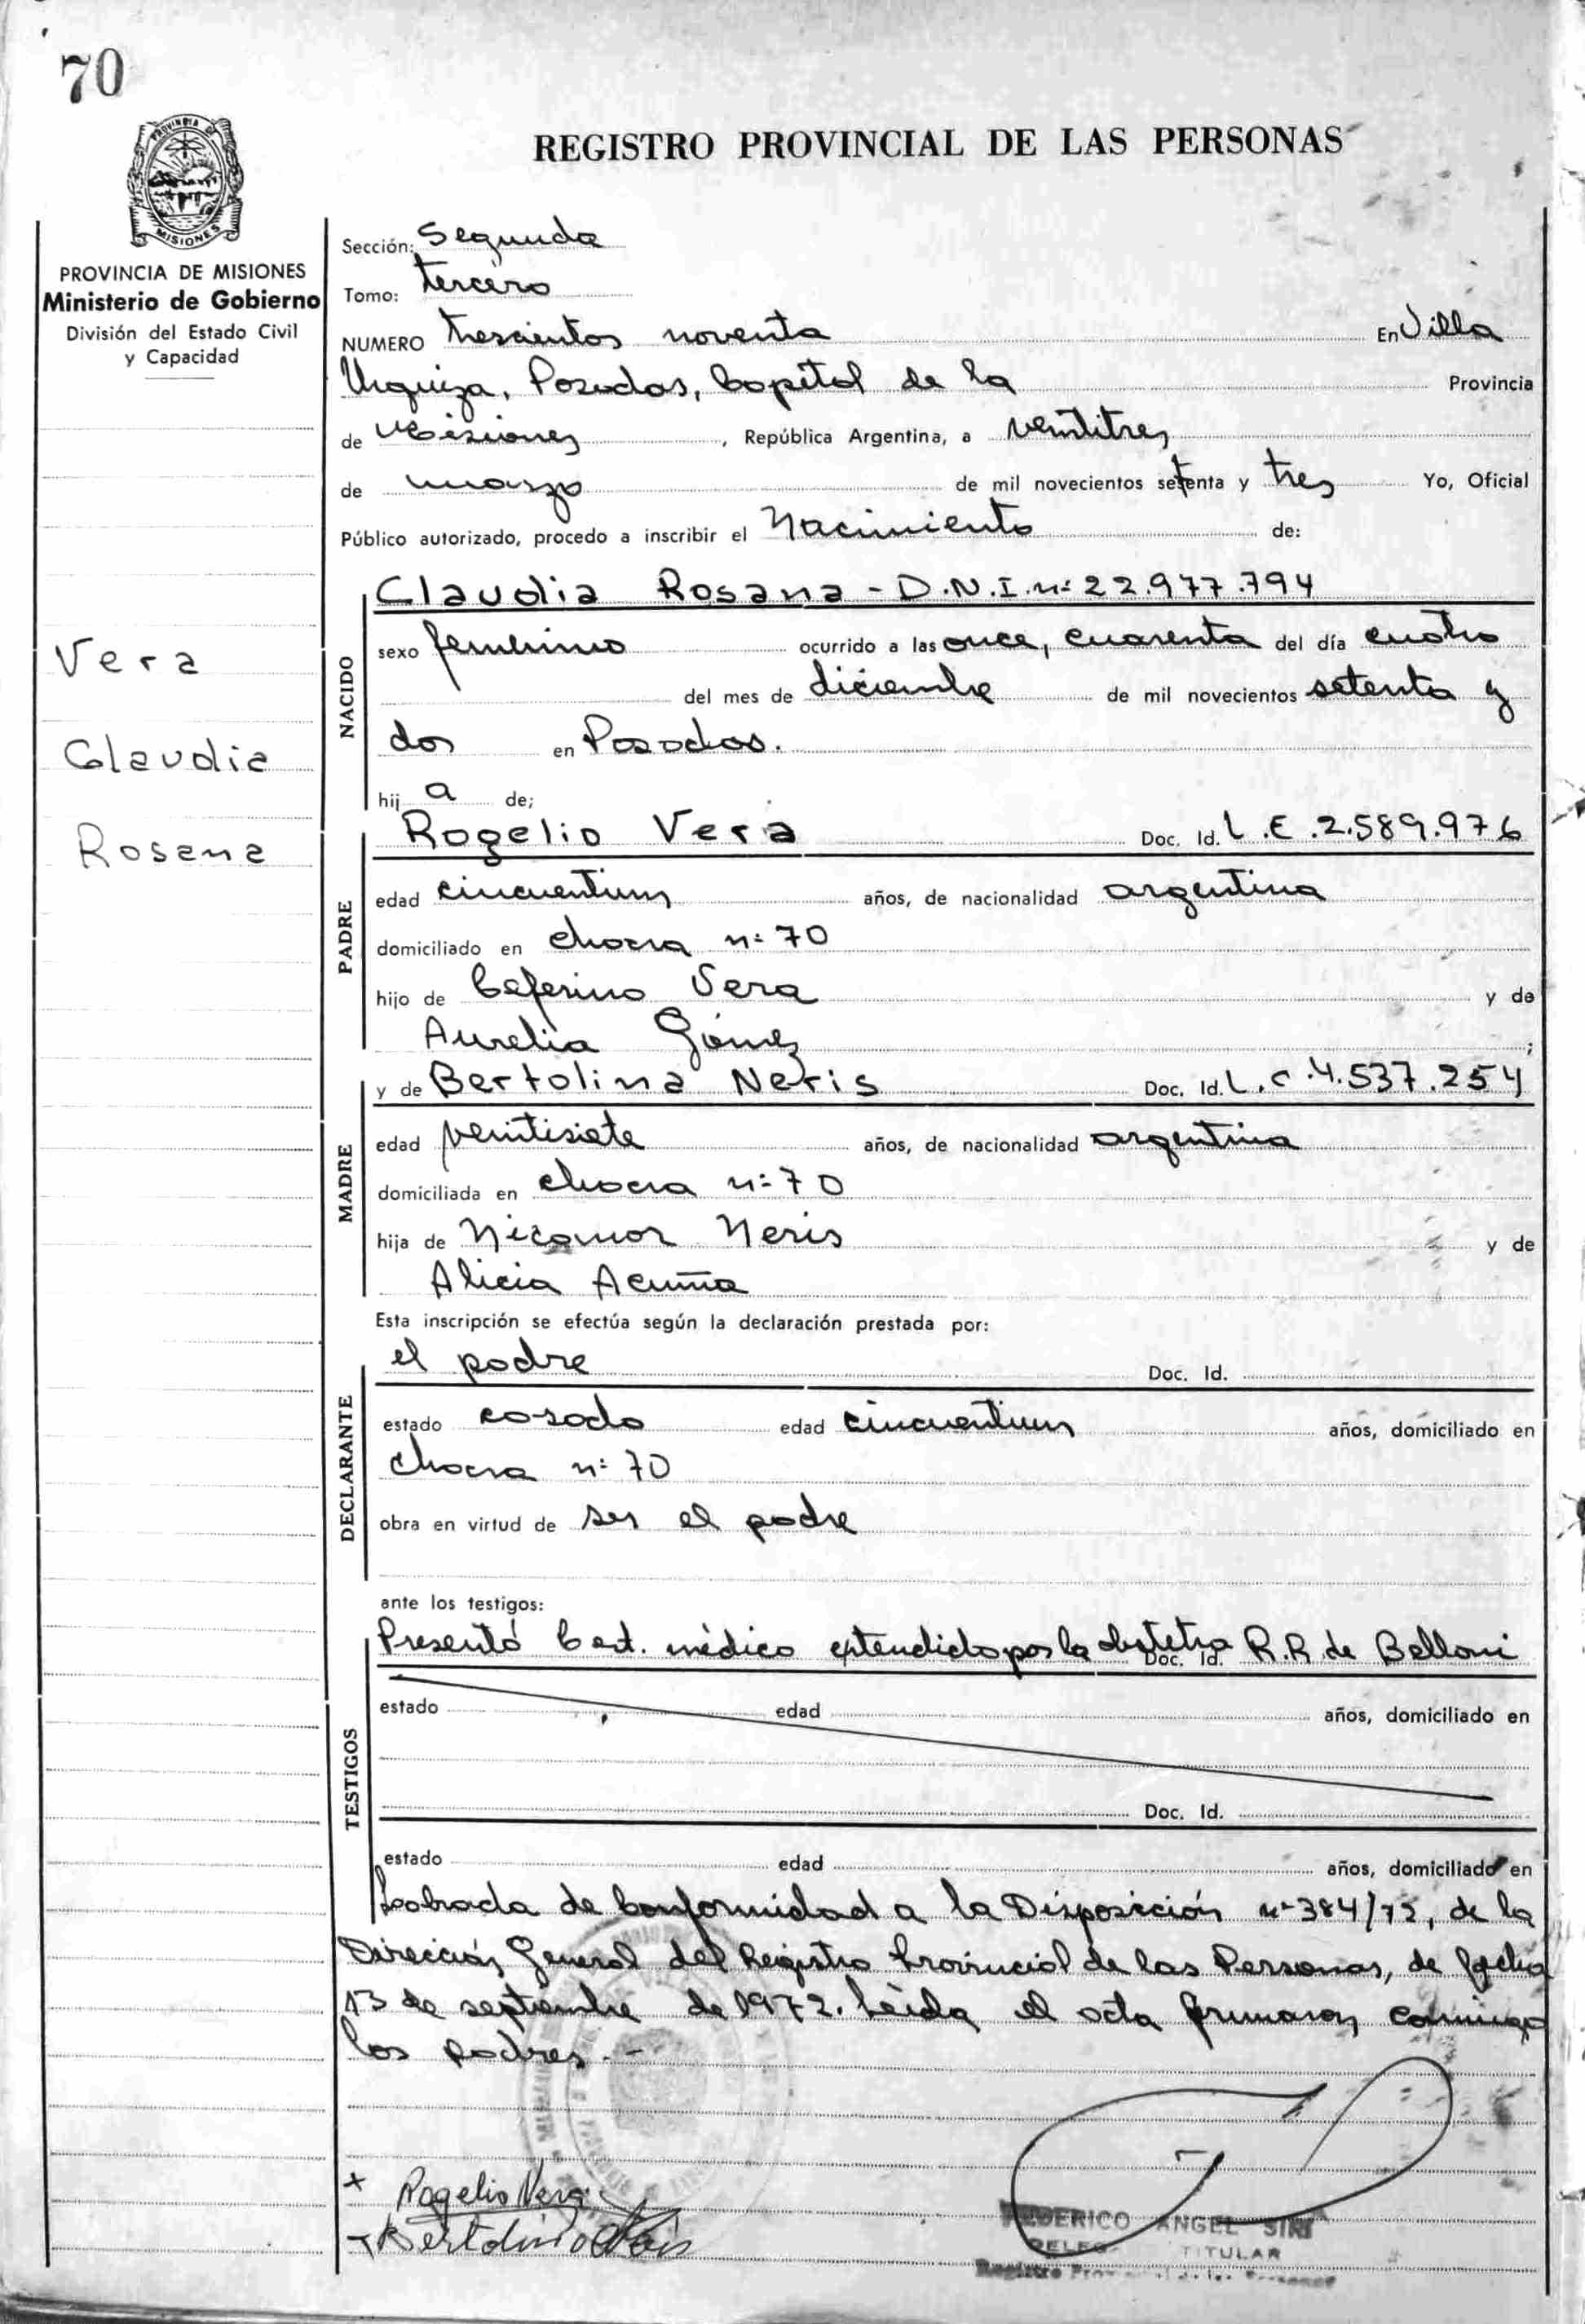 70
REGISTRO PROVINCIAL DE LAS PERSONAS
PROVINCIA
MISIONES
PROVINCIA DE MISIONES
Ministerio de Gobierno
División del Estado Civil
y Capacidad
Vera
Claudia
Rosana
Sección: Segunda
Tomo: tercero
NUMERO trescientos noventa En Villa
Urquiza, Posadas, Capital de la Provincia
de Misiones, República Argentina, a veintitres
de marzo de mil novecientos setenta y tres Yo, Oficial
Público autorizado, procedo a inscribir el Nacimiento de:
NACIDO
Claudia Rosana - D.N.I. nº 22.977.794
sexo femenino ocurrido a las once, cuarenta del día cuatro
del mes de diciembre de mil novecientos setenta y
dos en Posadas.
hij a de;
PADRE
Rogelio Vera Doc. Id. L.E. 2.589.976
edad cincuentiun años, de nacionalidad argentina
domiciliado en chacra nº 70
hijo de Ceferino Vera y de
Aurelia Gómez ;
MADRE
y de Bertolina Neris Doc. Id. L.C. 4.537.254
edad veintisiete años, de nacionalidad argentina
domiciliada en chacra nº 70
hija de Nicanor Neris y de
Alicia Acuña
Esta inscripción se efectúa según la declaración prestada por:
DECLARANTE
el padre Doc. Id.
estado casado edad cincuentiun años, domiciliado en
chacra nº 70
obra en virtud de ser el padre
ante los testigos:
TESTIGOS
Presentó Cert. médico extendido por la obstetra Doc. Id. R.R de Belloni
estado edad años, domiciliado en
Doc. Id.
estado edad años, domiciliado en
Labrada de Conformidad a la Disposición nº 384/72, de la
Dirección General del Registro Provincial de las Personas, de fecha
13 de septiembre de 1972. Leída el acta firmaron conmigo
los padres.-
+ Rogelio Vera
Bertolina Neris
FEDERICO ANGEL SIRI
TITULAR
Registro